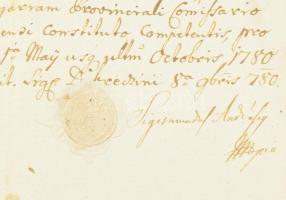 gariam Provinciali Comissario
ensi Constituto Competentis, pro
1ª May usq ultim Octobris, 1780
it. Sig. D 8ª 9bris 780.
Sigismundus Andrássy